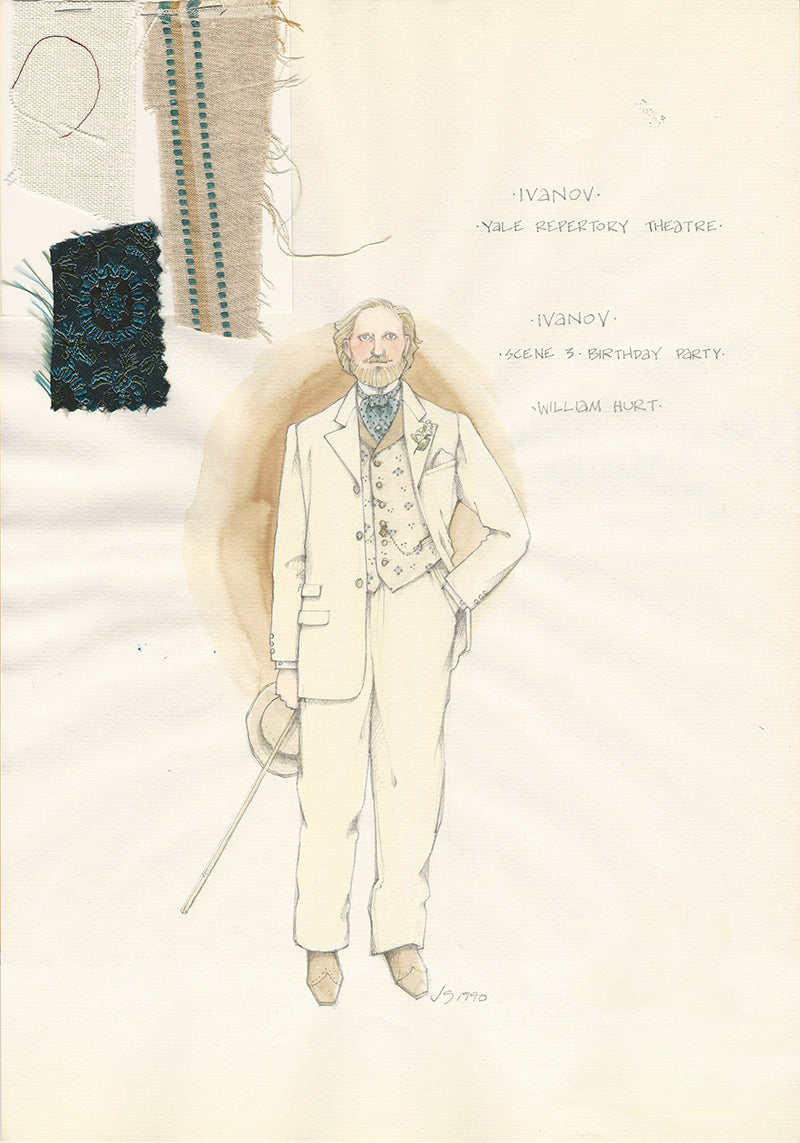 ·IVANOV·
·YALE REPERTORY THEATRE·
·IVANOV·
·SCENE 3·BIRTHDAY PARTY·
·WILLIAM HURT·
JS 1990